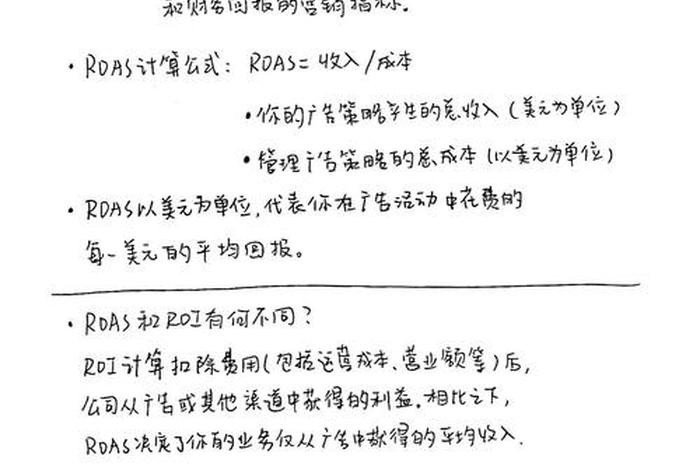 和财务回报的营销指标.
· ROAS计算公式: ROAS=收入/成本
· 你的广告策略产生的总收入(美元为单位)
· 管理广告策略的总成本(以美元为单位)
· ROAS以美元为单位,代表你在广告活动中花费的
每一美元的平均回报。
· ROAS和ROI有何不同?
ROI计算扣除费用(包括运营成本、营业额等)后,
公司从广告或其他渠道中获得的利益.相比之下,
ROAS决定了你的业务仅从广告中获得的平均收入.